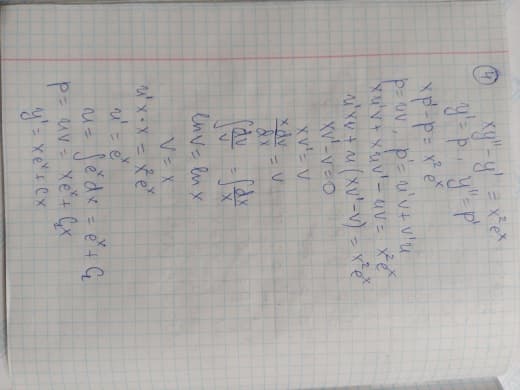 ④ xy'' - y' = x²eˣ
y' = p, y'' = p'
xp' - p = x²eˣ
p = uv, p' = u'v + v'u
xu'v + xuv' - uv = x²eˣ
u'xv + u(xv' - v) = x²eˣ
xv' - v = 0
xv' = v
xdv/dx = v
∫dv/v = ∫dx/x
ln v = ln x
v = x
u'x·x = x²eˣ
u' = eˣ
u = ∫eˣdx = eˣ + C₁
p = uv = xeˣ + C₁x
y' = xeˣ + Cx